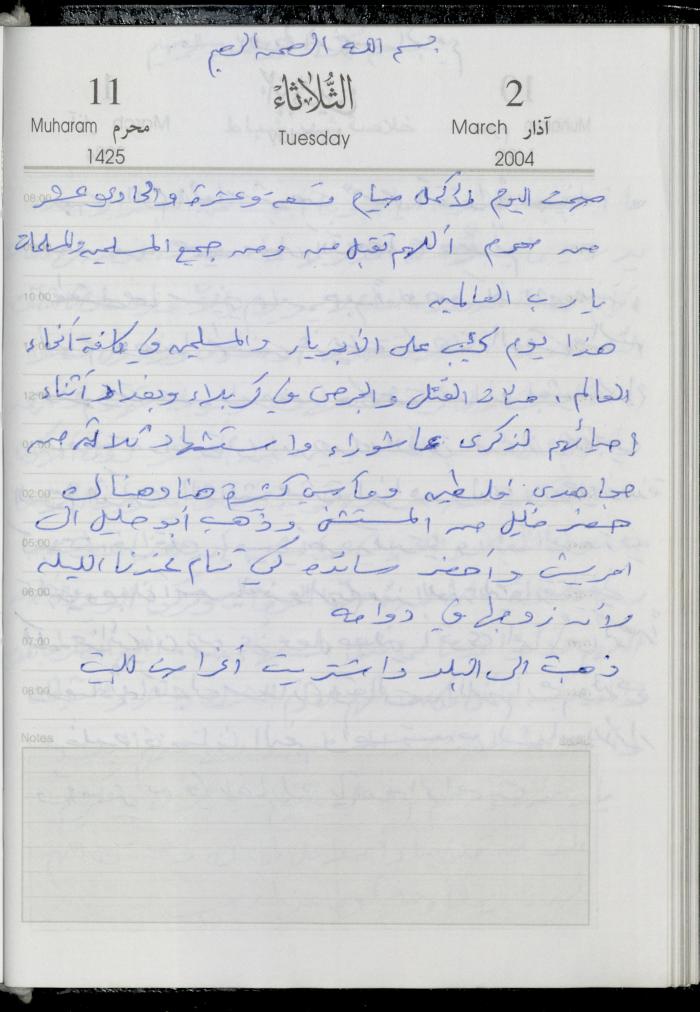 بسم الله الرحمن الرحيم
11 الثلاثاء 2
Muharam محرم Tuesday March آذار
1425 2004
08:00 صمت اليوم لأكمل صيام تسعة وعشرة والحادي عشر
من محرم أللهم تقبل من ومن جميع المسلمين والمسلمات
10:00 يا رب العالمين
هذا يوم كئيب على الأبرياء والمسلمين في كافة أنحاء
العالم، مئات القتل والجرحى في كربلاء وبغداد أثناء
إحيائهم لذكرى عاشوراء واستشهاد ثلاثة من
02:00 مجاهدي فلسطين ومآسي كثيرة هنا وهناك
حضر خليل من المستشفى وذهب أبو خليل الى
05:00 امريش وأحضر سائده كي تنام عندنا الليله
06:00 ولأن زوجها في دوامه
07:00
08:00 ذهبت الى البلد واشتريت أغراض للبيت
Notes